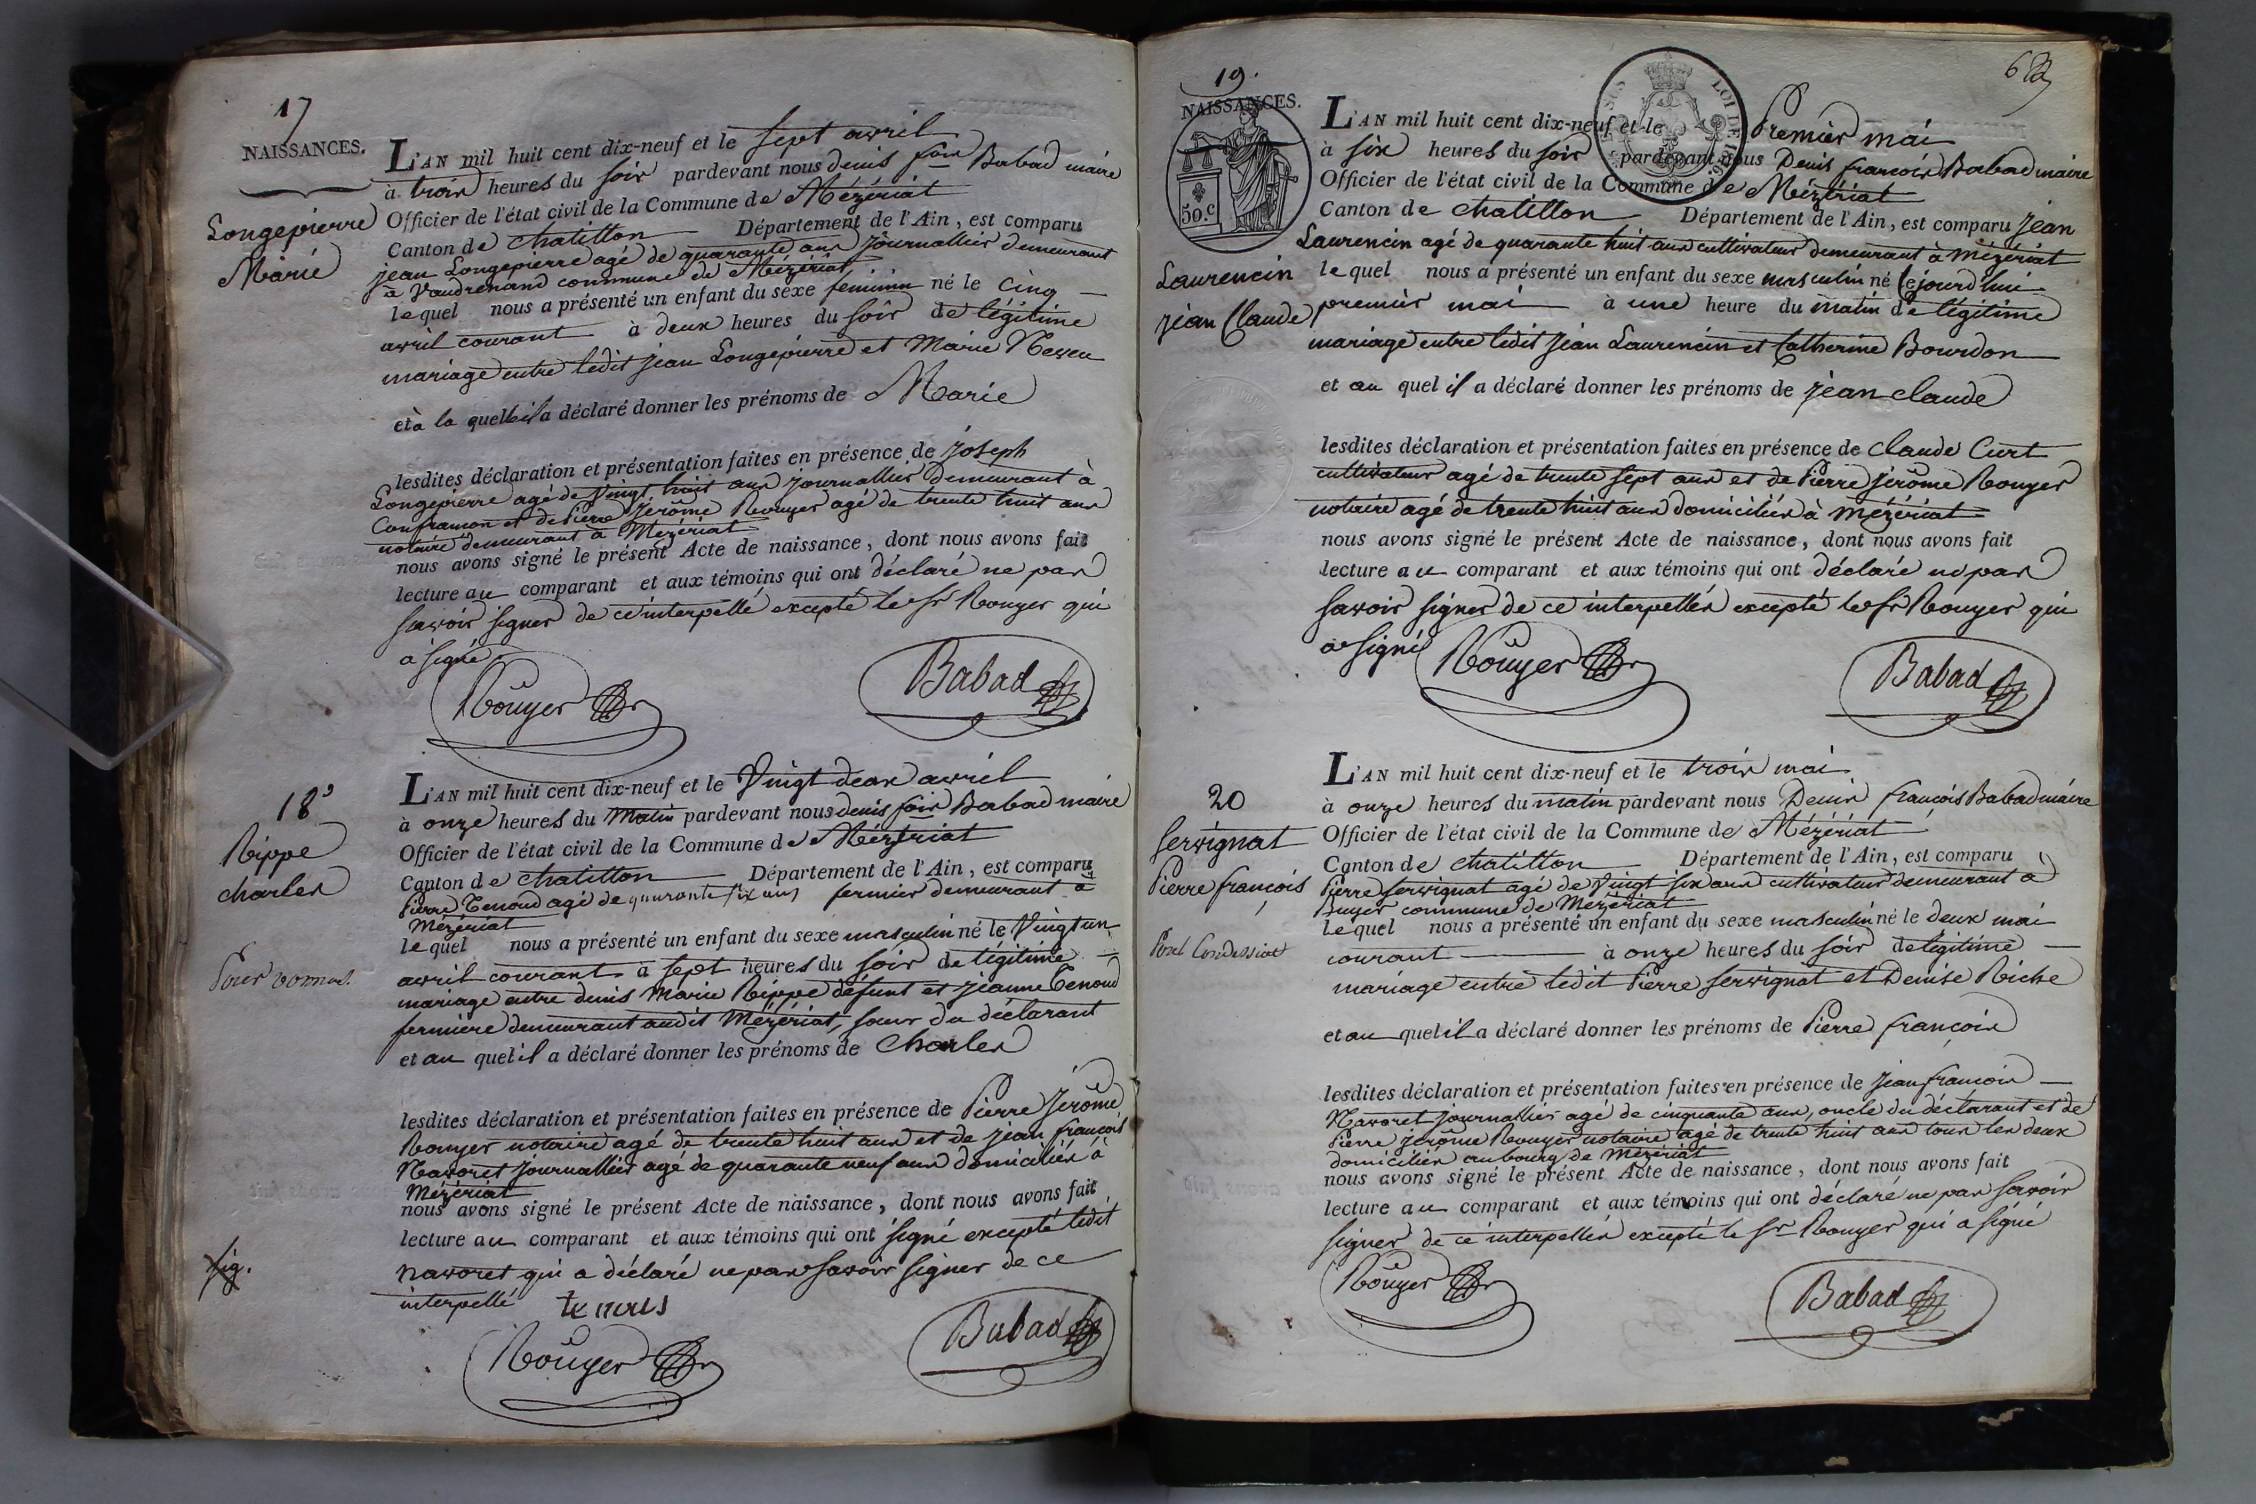 17
NAISSANCES.
Longepierre
Marie
L'AN mil huit cent dix-neuf et le sept avril
à trois heures du soir pardevant nous denis fois Babad maire
Officier de l'état civil de la Commune de Mézériat
Canton de chatillon Département de l'Ain, est comparu
jean Longepierre agé de quarante ans journallier demeurant
à Vaudrenand commune de Mézériat,
lequel nous a présenté un enfant du sexe féminin né le cinq
avril courant à deux heures du soir de légitime
mariage entre ledit jean Longepierre et Marie Neveu
et à la quelle il a déclaré donner les prénoms de Marie
lesdites déclaration et présentation faites en présence de joseph
Longepierre agé de Vingt huit ans journallier demeurant à
Confrançon et de Pierre jérôme Rouyer agé de trente huit ans
notaire demeurant à Mézériat
nous avons signé le présent Acte de naissance, dont nous avons fait
lecture au comparant et aux témoins qui ont déclaré ne pas
savoir signer de ce interpellé excepté le sr Rouyer qui
a signé.
Rouyer
Babad
18e
Rippe
charles
Pour vonnas.
sig.
L'AN mil huit cent dix-neuf et le Vingt deux avril
à onze heures du Matin pardevant nous denis fois Babad maire
Officier de l'état civil de la Commune de Mézériat
Canton de chatillon Département de l'Ain, est comparu
Pierre Tenoud agé de quarante six ans fermier demeurant à
Mézériat
lequel nous a présenté un enfant du sexe masculin né le Vingt un
avril courant à sept heures du soir de légitime
mariage entre denis Marie Rippe défunt et jeanne Tenoud
fermière demeurant audit Mézériat, sœur du déclarant
et au quel il a déclaré donner les prénoms de Charles
lesdites déclaration et présentation faites en présence de Pierre Jérôme
Rouyer notaire agé de trente huit ans et de jean françois
Navoret journallier agé de quarante neuf ans domiciliés à
Mézériat
nous avons signé le présent Acte de naissance, dont nous avons fait
lecture au comparant et aux témoins qui ont signé excepté ledit
navoret qui a déclaré ne pas savoir signer de ce
interpellé
Rouyer
Babad
19.
NAISSANCES.
50.c
LOI DE 1816
6
Laurencin
jean Claude
L'AN mil huit cent dix-neuf et le Premier mai
à six heures du soir pardevant nous Denis françois Babad maire
Officier de l'état civil de la Commune de Mézériat
Canton de chatillon Département de l'Ain, est comparu jean
Laurencin agé de quarante huit ans cultivateur demeurant à Mézériat
lequel nous a présenté un enfant du sexe masculin né cejourd'hui
premier mai à une heure du matin de légitime
mariage entre ledit jean Laurencin et Catherine Bourdon
et au quel il a déclaré donner les prénoms de jean claude
lesdites déclaration et présentation faites en présence de Claude Curt
cultivateur agé de trente sept ans et de Pierre jérôme Rouyer
notaire agé de trente huit ans domiciliés à Mézériat
nous avons signé le présent Acte de naissance, dont nous avons fait
lecture au comparant et aux témoins qui ont déclaré ne pas
savoir signer de ce interpellés excepté le sr Rouyer qui
a signé
Rouyer
Babad
20
Servignat
Pierre françois
Pont
L'AN mil huit cent dix-neuf et le trois mai
à onze heures du matin pardevant nous Denis françois Babad maire
Officier de l'état civil de la Commune de Mézériat
Canton de chatillon Département de l'Ain, est comparu
Pierre Servignat agé de Vingt six ans cultivateur demeurant à
Buyer commune de Mézériat
lequel nous a présenté un enfant du sexe masculin né le deux mai
courant à onze heures du soir de légitime
mariage entre ledit Pierre Servignat et Denise Riche
et au quel il a déclaré donner les prénoms de Pierre françois
lesdites déclaration et présentation faites en présence de jean françois
Navoret journallier agé de cinquante ans, oncle du déclarant et de
Pierre jérôme Rouyer notaire agé de trente huit ans tous les deux
domiciliés au bourg de Mézériat
nous avons signé le présent Acte de naissance, dont nous avons fait
lecture au comparant et aux témoins qui ont déclaré ne pas savoir
signer de ce interpellés excepté le sr Rouyer qui a signé
Rouyer
Babad